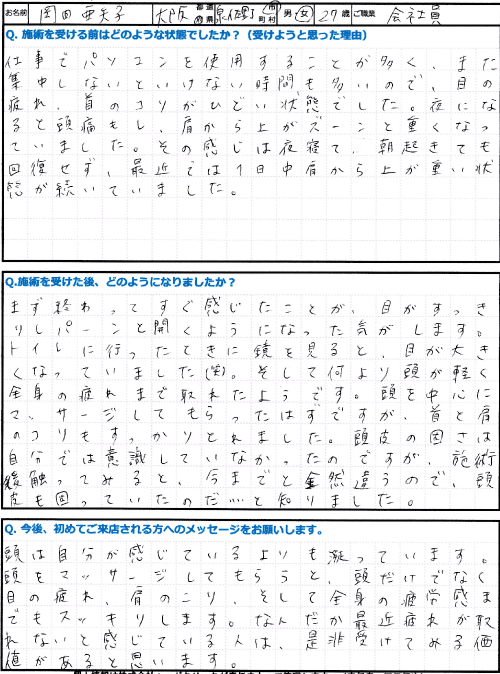 お名前 岡田亜矢子 大阪 都道府県 泉佐野 市町村 男・女 27歳 ご職業 会社員
Q. 施術を受ける前はどのような状態でしたか？（受けようと思った理由）
仕事でパソコンを使用することが多く、また
集中しないといけない時間も多いので、目の
疲れ、首のコリがひどい状態でした。夜にな
ると頭痛もし、肩から上がズーンと重くなっ
ていました。その感じは夜寝て、朝起きても
回復せず、最近では1日中肩から上が重い状
態が続いていました。
Q.施術を受けた後、どのようになりましたか？
まず終わってすぐ感じたことが、目がすっき
りしパーンと開くようになった気がします。
トイレに行ったときに鏡を見ると、目が大き
くなっていました(笑)。そして何より頭が軽く
全身の疲れまで取れたようです。頭を中心に
マッサージしてもらったはずですが、首と肩
のコリもすっかりとれました。頭皮の固さは
自分では意識していなかったのですが、施術
後触ってみると、今までと全然違うので、頭
皮も固っていたのだ…と知りました。
Q. 今後、初めてご来店される方へのメッセージをお願いします。
頭は自分が感じているよりも凝っています。
頭をマッサージしてもらうと、頭だけでなく
目の疲れ、肩のこり、そして全身の疲労感ま
でもスッキリします。なんだか最近疲れが取
れないと感じている人は、是非受けてみる価
値があると思います。